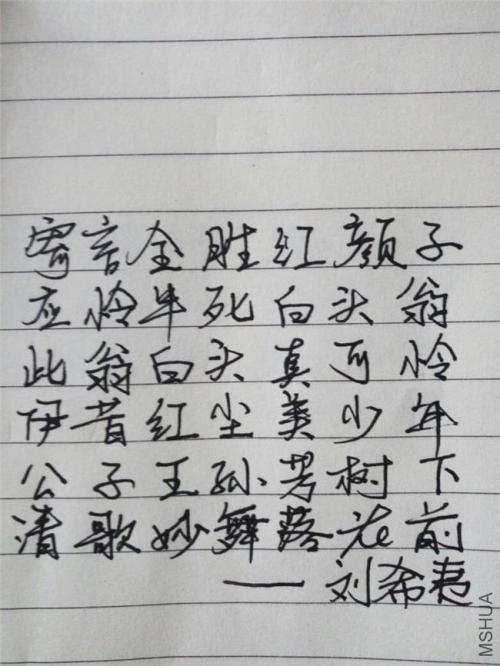 寄言全胜红颜子
应怜半死白头翁
此翁白头真可怜
伊昔红尘美少年
公子王孙芳树下
清歌妙舞落花前
——刘希夷
MSHUA